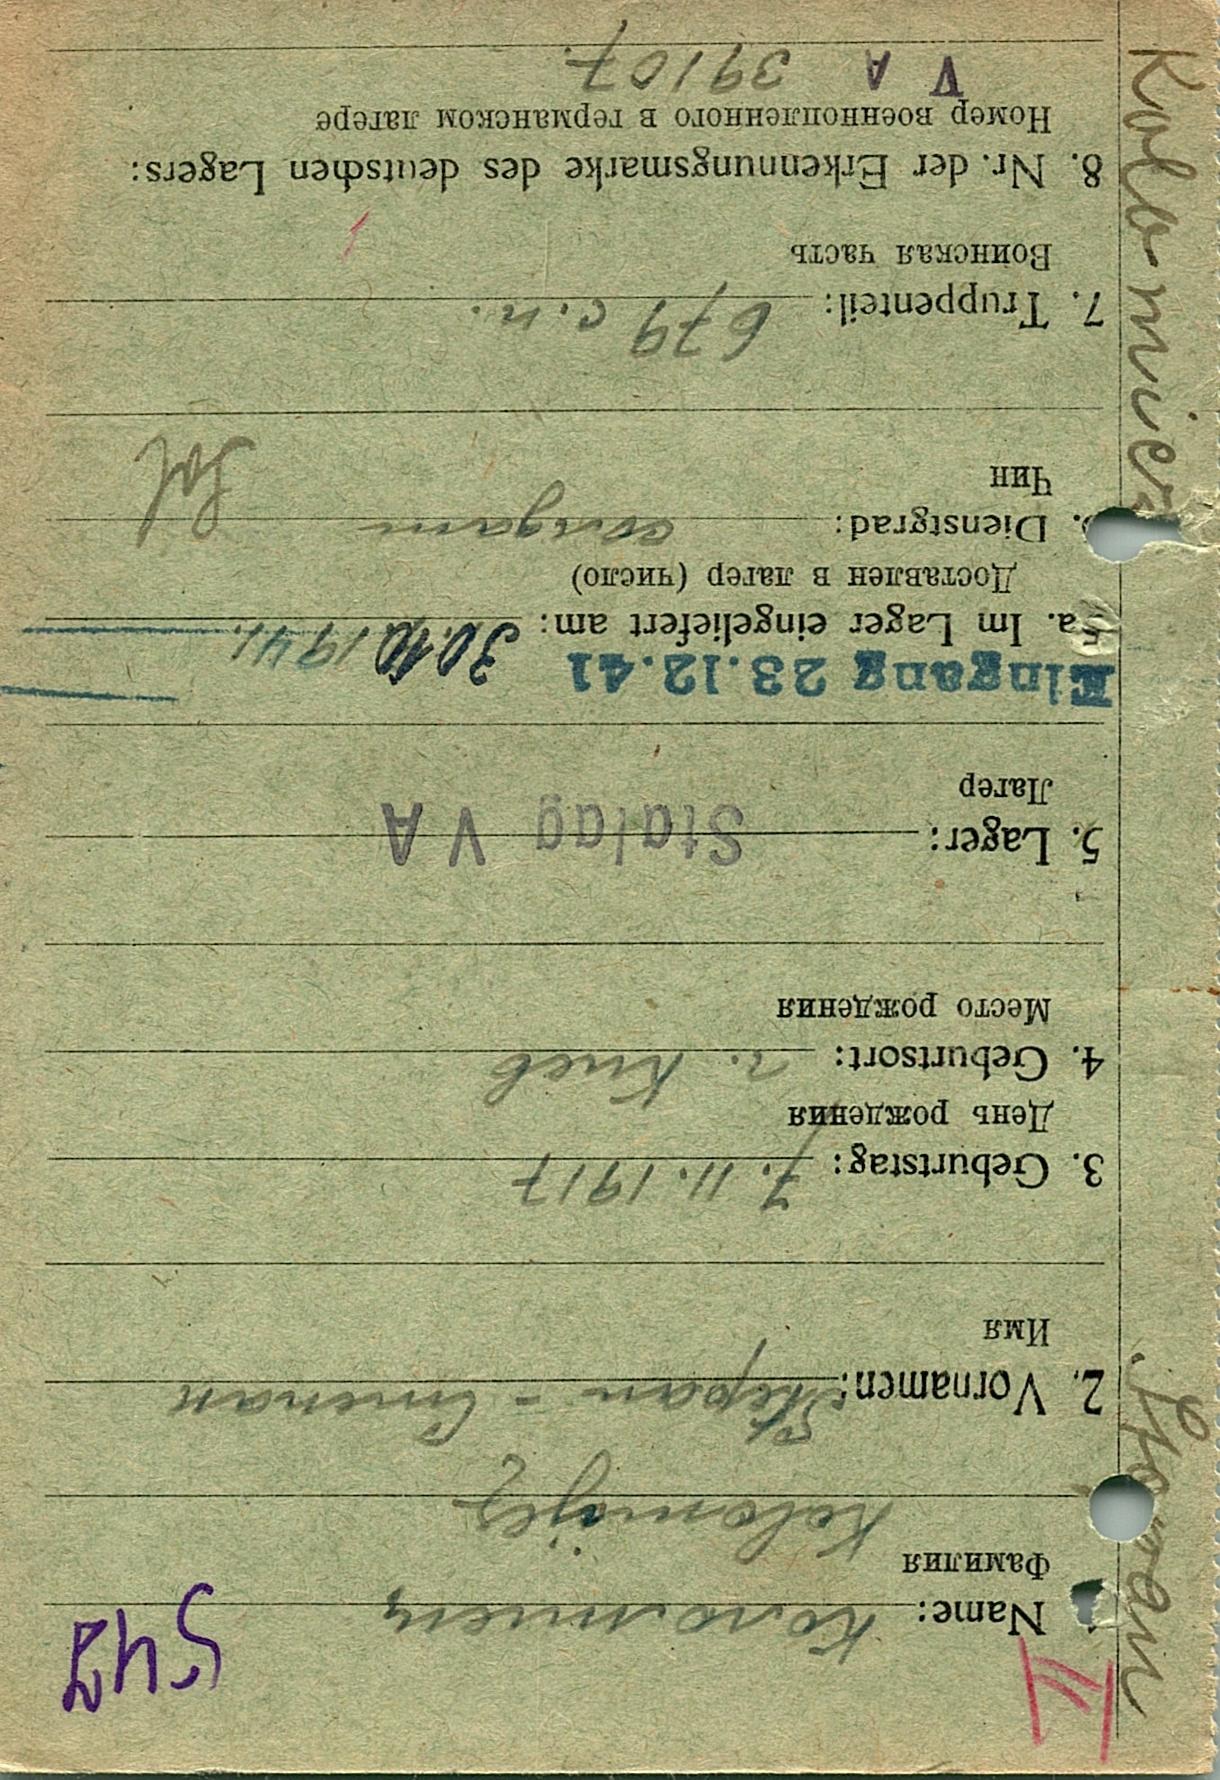 Kolomiez Stepan
542
1. Name: Коломиец
Фамилия
Kolomijez
2. Vornamen: Stepan - Степан
Имя
3. Geburtstag: 7. 11. 1917
День рождения
4. Geburtsort: г. Киев
Место рождения
5. Lager: Stalag V A
Лагер
Eingang 23.12.41
5a. Im Lager eingeliefert am: 30.10.1941.
Доставлен в лагер (число)
6. Dienstgrad: солдат Sol
Чин
7. Truppenteil: 679 с.п.
Воинская часть
8. Nr. der Erkennungsmarke des deutschen Lagers:
Номер военнопленного в германском лагере
V A 39107.